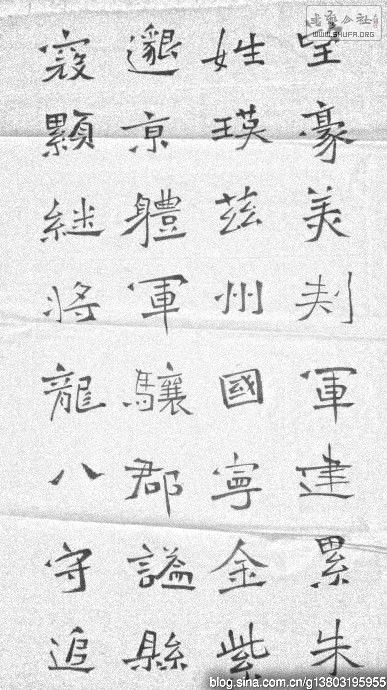 望豪美刾軍建累朱
姓瑛茲州國寧金紫
邈京體軍驤郡謚縣
寇継將龍八守追
書藝公社
WWW.SHUFA.ORG
blog.sina.com.cn/g13803195955